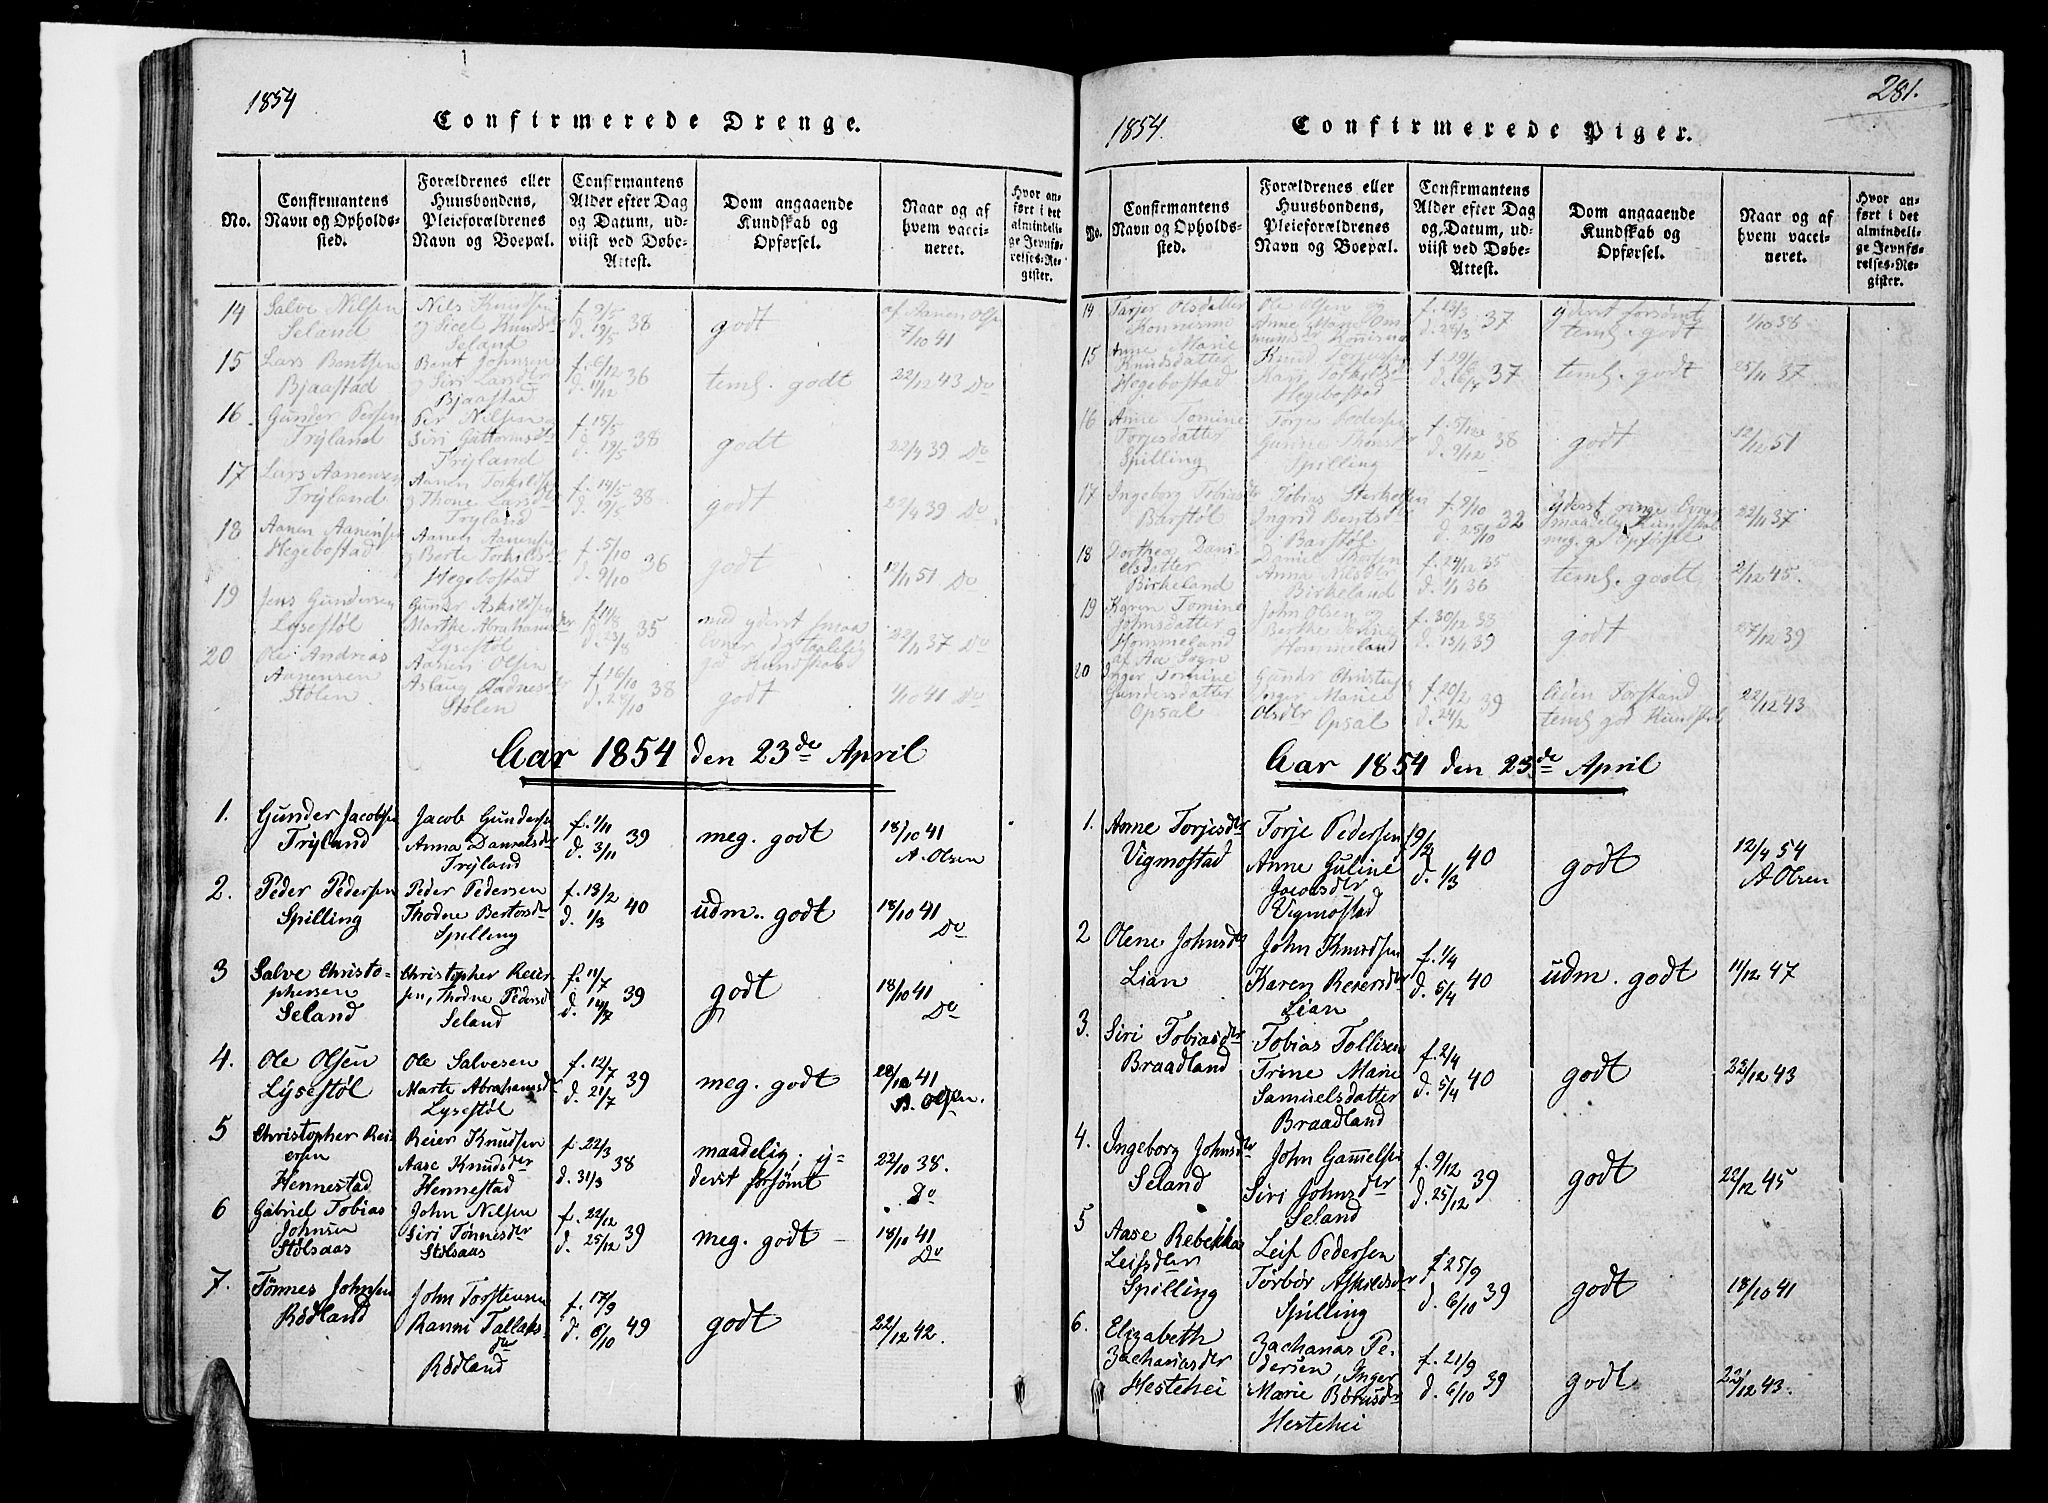 1854
Confirmerede Drenge.
No.
Confirmantens Navn og Opholdssted.
Forældrenes eller Huusbondens, Pleieforældrenes Navn og Boepæl.
Confirmantens Alder efter Dag og Datum, udviist ved Døbe-Attest.
Dom angaaende Kundskab og Opførsel.
Naar og af hvem vaccineret.
Hvor anført i det almindelige Jevnførelses-Register.
14 Salve Nilsen Seland
Nils Knudsen og Sicel Knudsdr Seland
f. 9/5 d. 19/5 38
godt
af Aanen Olsen 7/10 41
15 Lars Bentsen Bjaastad
Bent Johnsen og Siri Larsdr Bjaastad
f. 6/12 d. 11/12 36
teml. godt
22/12 43 Do
16 Gunder Persen Trÿland
Per Nilsen Siri Guttormsdr Trijland
f. 15/5 d. 19/5 38
godt
22/4 39 Do
17 Lars Aanensen Trÿland
Aanen Torkildsen og Thone Larsdr Tryland
f. 14/5 d. 19/5 38
godt
22/4 39 Do
18 Aanen Aanensen Hegebostad
Aanen Aanensen og Berte Torkildsdr Hegebostad
f. 5/10 d. 9/10 36
godt
12/11 51 Do
19 Jens Gundersen Lysestøl
Gunder Askildsen Marthe Abrahamsdr Lysestøl
f. 11/8 d. 23/8 35
med yderst smaa Evner
22/11 37 Do
20 Ole Andreas Aanensen Stølen
Aanen Olsen Aslaug Stølen
f. 16/10 d. 28/10 38
godt
1/10 41 Do
Aar 1854 den 23de April
1. Gunder Jacobsen Trÿland
Jacob Gundersen Anna Danielsdr Trÿland
f. 1/11 d. 3/11 39
meg. godt
18/10 41 A. Olsen
2. Peder Pedersen Spilling
Peder Pedersen Thodne Bertorsdr Spilling
f. 13/2 d. 1/3 40
udm. godt
18/10 41 Do
3 Salve Christophersen Seland
Christopher Reiersen, Thodne Pedersd Seland
f. 11/7 d. 14/7 39
godt
18/10 41 Do
4. Ole Olsen Lÿsestøl
Ole Salvesen Marte Abrahamsdr Lysestøl
f. 12/7 d. 21/7 39
meg. godt
28/12 41 A. Olsen.
5 Christopher Reiersen Hennestad
Reier Knudsen Aase Knudsder Hennestad
f. 22/3 d. 31/3 38
maadelig, ijderst forsömt
22/10 38. Do
6 Gabriel Tobias Johnsen Stölsaas
John Nilsen Siri Tønnesder Stölsaas
f. 22/12 d. 25/12 39
meg. godt
18/10 41 Do
7. Tönnes Johnsen Rödland
John Torstensen Ranni Tallaksdr Rödland
f. 17/9 d. 8/10 49
godt
22/12 42.
281.
1854.
Confirmerede Piger.
No.
Confirmantens Navn og Opholdssted.
Forældrenes eller Huusbondens, Pleieforældrenes Navn og Boepæl.
Confirmantens Alder efter Dag og Datum, udviist ved Døbe-Attest.
Dom angaaende Kundskab og Opførsel.
Naar og af hvem vaccineret.
Hvor anført i det almindelige Jevnførelses-Register.
14 Tarjer Olsdatter Konnesmo
Ole Olsen og Anne Marie
f. 13/3 d. 28/3 37
yderst forsömt teml. godt
1/10 38
15 Anne Marie Knudsdatter Hegebostad
Knud Torjussen Kari Torkildsdr Hegebostad
37
teml. godt
25/11 37
16 Anne Tomine Torjesdatter Spilling
Torje Pedersen Gunne Thorsdr Spilling
f. 5/12 d. 9/12 38
godt
12/12 51
17 Ingeborg Tobiasdr Barstøl
Tobias Sterkelsen Ingrid Bentsdr Barstøl
f. 9/10 d. 25/10 32
yderst ringe Evner maadelig Kundskab meg. g. Opførsel
22/11 37
18 Dorthea Danielsdatter Birkeland
Daniel Thorsen Anna Nilsdr Birkeland
f. 24/12 35 d. 1/1 36
teml. godt
2/12 45.
19 Karen Tomine Johnsdatter Hommeland af Aa Sogn
John Olsen og Berthe Serine Hommeland
f. 30/12 38 d. 13/1 39
godt
27/12 39
20 Inger Tomine Gundersdatter Opsal
Gunder Christensen Inger Marie Olsdr Opsal
f. 20/2 d. 24/2 39
liden Forstand teml. god Kundskab
22/12 43
Aar 1854 den 23de April
1. Anne Torjesdr Vigmostad
Torje Pedersen Anne Guline Jacobsdr Vigmostad
19/2 d. 1/3 40
godt
12/4 54 A Olsen
2 Olene Johnsdr Lian
John Knudsen Karen Reiersdr Lian
f. 1/4 d. 5/4 40
udm. godt
11/12 47
3. Siri Tobiasdr Braadland
Tobias Tollisen Trine Marie Samuelsdatter Braadland
f. 2/4 d. 5/4 40
godt
22/12 43
4. Ingeborg Johnsdr Seland
John Gamelsen Siri Johnsder Seland
f. 9/12 d. 25/12 39
godt
22/12 45
5 Aase Rebekka Leifsdter Spilling
Leif Pedersen Törbör Askildsdr Spilling
f. 25/9 d. 6/10 39
godt
18/10 41
6. Elizabeth Zachariasder Hestehei
Zacharias Pedersen, Inger Marie Börusdr Hestehei
f. 21/9 d. 6/10 39
godt
22/12 43.